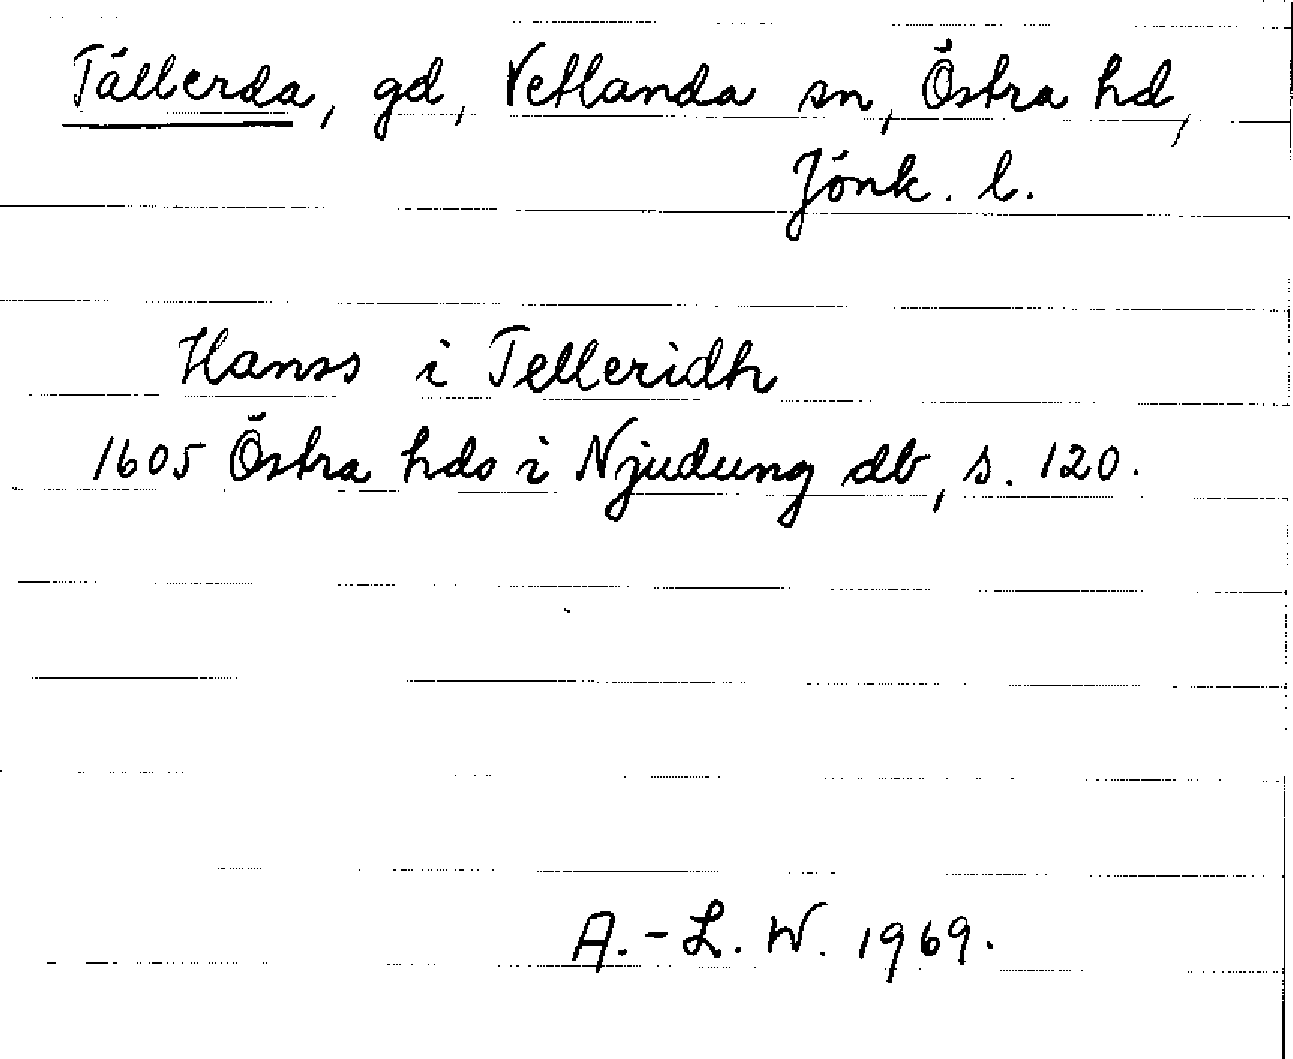 Tällerda, gd, Vetlanda sn, Östra hd,
Jönk. l.
Hanss i Telleridh
1605 Östra hds i Njudung db, s. 120.
A.-L. W. 1969.